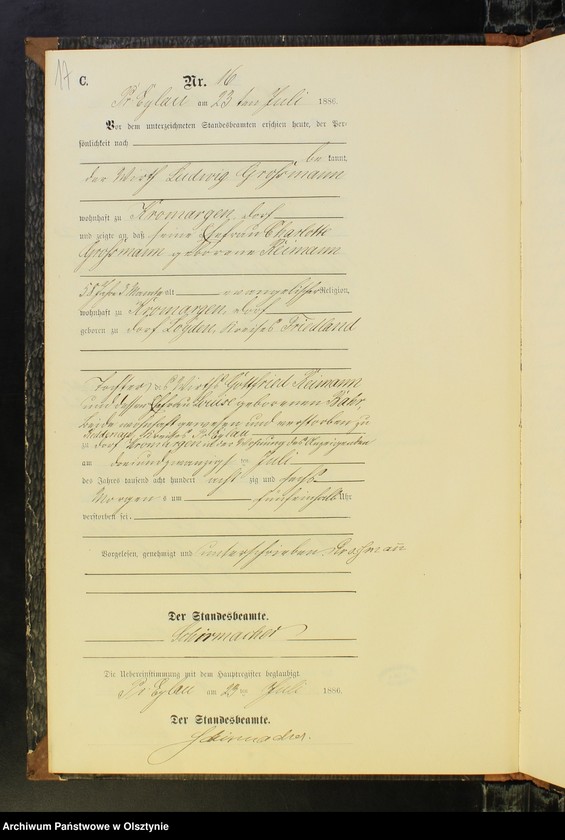 17
C. Nr. 16
Pr Eylau am 23 ten Juli 1886.
Vor dem unterzeichneten Standesbeamten erschien heute, der Per-
sönlichkeit nach
be kannt,
der Wirth Ludwig Großmann
wohnhaft zu Kromargen, Dorf
und zeigte an, daß seine Ehefrau Charlotte
Großmann geborene Reimann
58 Jahre 3 Monate alt evangelischer Religion,
wohnhaft zu Kromargen, Dorf
geboren zu Dorf Loyden, Kreises Friedland
Tochter des Wirths Gottfried Reimann
und dessen Ehefrau Louise geborenen Bähr,
beide wohnhaft gewesen und verstorben zu
Kreises Pr Eylau
zu Dorf Kromargen in der Wohnung des Anzeigenden
am dreiundzwanzigsten Juli
des Jahres tausend acht hundert acht zig und sechs
Morgens um fünfeinhalb Uhr
verstorben sei.
Vorgelesen, genehmigt und unterschrieben Großmann
Der Standesbeamte.
Schirmacher
Die Uebereinstimmung mit dem Hauptregister beglaubigt.
Pr Eylau am 23 ten Juli 1886.
Der Standesbeamte.
Schirmacher.
Archiwum Państwowe w Olsztynie